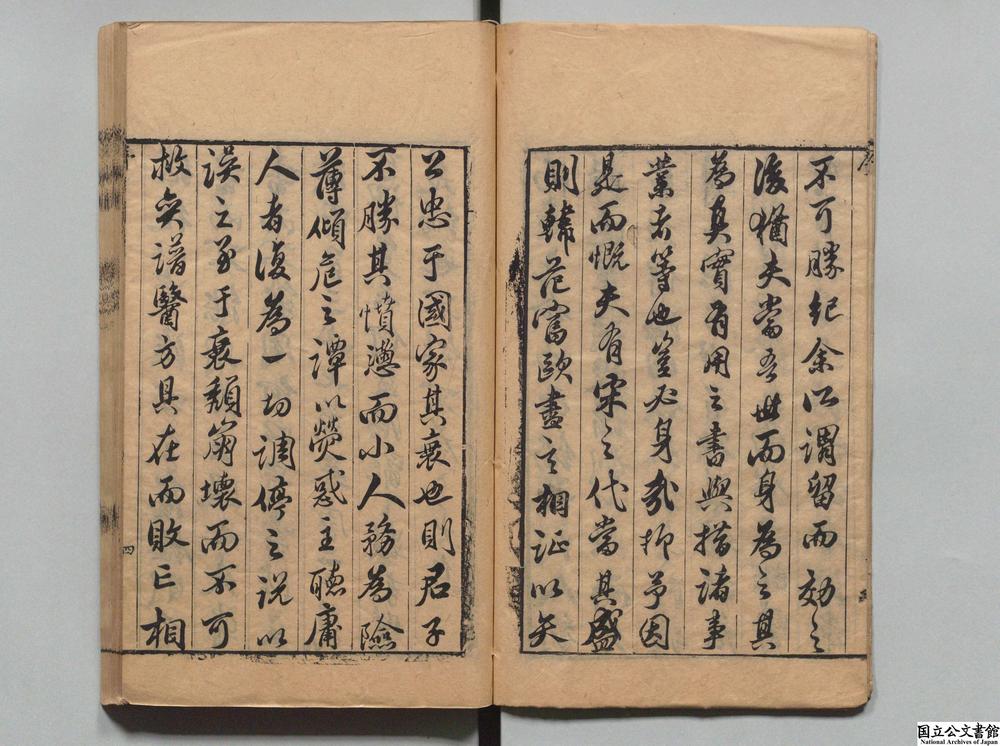 不可勝紀余以謂留而効之
後猶夫當吾世而身為之其
為真實有用之書與措諸事
業者等也豈必身哉抑予因
是而慨夫有宋之代當其盛
則韓范富歐盡言相証以矢
公忠于國家其衰也則君子
不勝其憤懣而小人務為險
薄傾危之譚以熒惑主聽庸
人者復為一切調停之說以
誤之至于衰頹崩壞而不可
救矣譜醫方具在而敗亡相
四
国立公文書館
National Archives of Japan